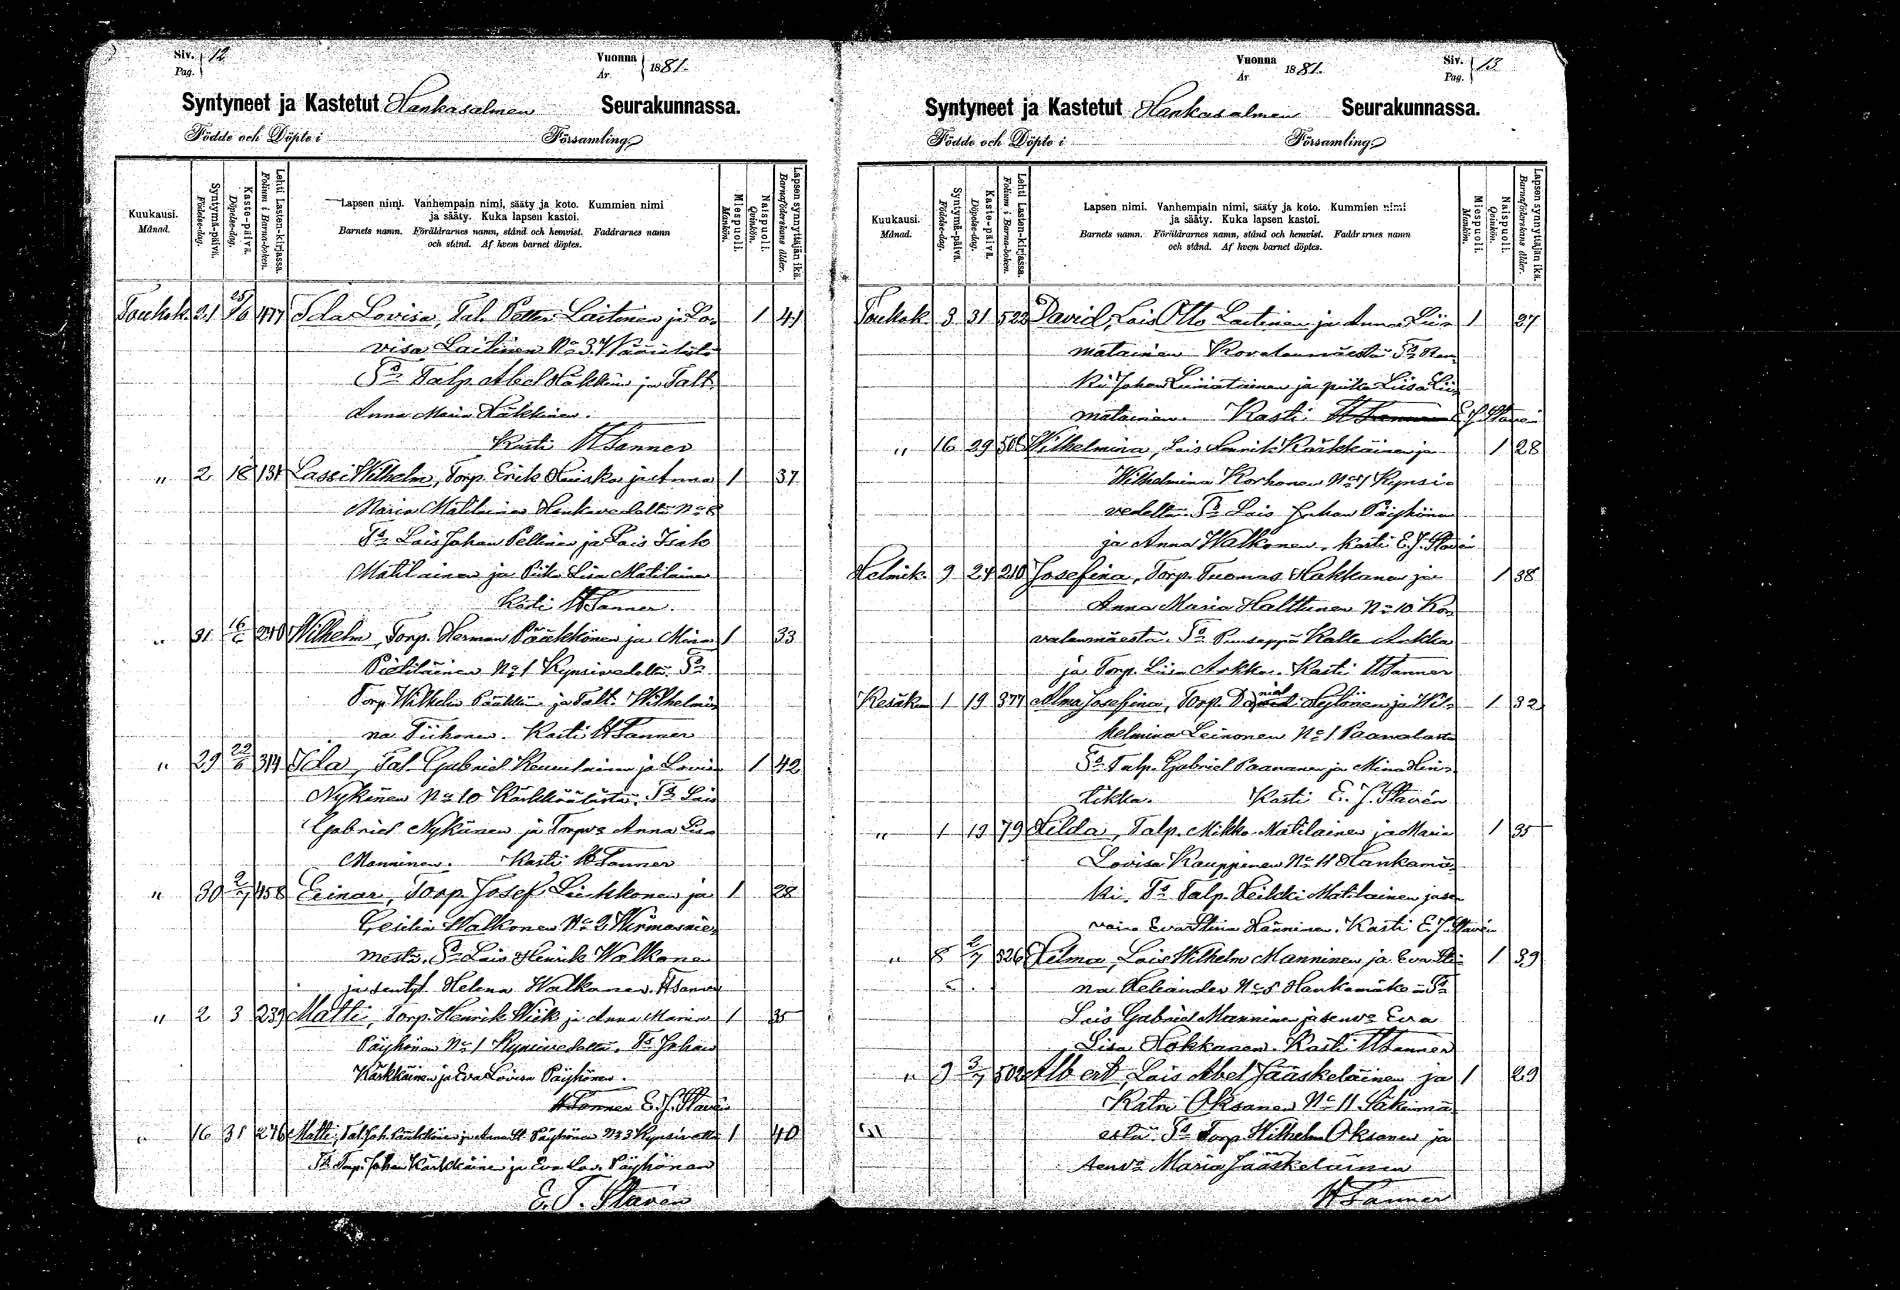 Siv. 12
Pag.
Vuonna 1881.
År
Syntyneet ja Kastetut Hankasalmen Seurakunnassa.
Födde och Döpte i Församling
Kuukausi.
Månad.
Syntymä-päivä.
Födelse-dag.
Kaste-päivä.
Döpelse-dag.
Lehti Lasten-kirjassa.
Folium i Barna-boken.
Lapsen nimi. Vanhempain nimi, sääty ja koto. Kummien nimi
ja sääty. Kuka lapsen kastoi.
Barnets namn. Föräldrarnes namn, stånd och hemvist. Faddrarnes namn
och stånd. Af hvem barnet döptes.
Miespuoli.
Mankön.
Naispuoli.
Qvinkön.
Lapsen synnyttäjän ikä.
Barnaföderskans ålder.
Toukok. 21 25/6 477 Ida Lovisa, Tal. Petter Laitinen ja Lo- 1 41
visa Laitinen No 37
Ts Talp. Abel Häkkinen ja Talt.
Anna Maria Häkkinen.
Kasti W Tanner
" 2 18 131 Lassi Wilhelm, Torp. Erik ja Anna 1 37
Maria Matilainen Hankavedelta No 8
Ts Lois Johan Pellinen ja Lois Isak
Matilainen ja Piika Lisa Matilainen
Kasti W Tanner.
" 31 16/6 240 Wilhelm, Torp. Herman Pääkkönen ja Mina 1 33
Pietiläinen No 1 Kynsivedeltä. Ts
Torp. Wilhelm ja Talt. Wilhelmi-
na Tiihonen. Kasti W Tanner
" 29 22/6 314 Ida, Tal. Gabriel ja Lovisa 1 42
Nykänen No 10 Ts Lois
Gabriel Nykänen ja Torpvs Anna Lisa
Manninen. Kasti W Tanner
" 30 2/7 458 Eeinar, Torp. Josef Liekkonen ja 1 28
Cesilia Walkonen No 2
Ts Lois Henrik Walkonen
ja Helena Walkonen. W Tanner
" 2 3 239 Matti, Torp. Henrik Wiik ja Anna Maria 1 35
Päyhönen No 1 Kynsivedeltä. Ts Johan
Kärkkäinen ja Eva Lovisa Päyhönen.
W Tanner E. J. Stavén
" 16 31 246 Matti, Tal. Joh. Pääkkönen ja Anna St. Päyhönen No 3 1 40
Ts Torp. Johan Kärkkäinen ja Eva Lov. Päyhönen
E. J. Stavén
Vuonna 1881.
År
Siv. 13
Pag.
Syntyneet ja Kastetut Hankasalmen Seurakunnassa.
Födde och Döpte i Församling
Kuukausi.
Månad.
Syntymä-päivä.
Födelse-dag.
Kaste-päivä.
Döpelse-dag.
Lehti Lasten-kirjassa.
Folium i Barna-boken.
Lapsen nimi. Vanhempain nimi, sääty ja koto. Kummien nimi
ja sääty. Kuka lapsen kastoi.
Barnets namn. Föräldrarnes namn, stånd och hemvist. Faddrarnes namn
och stånd. Af hvem barnet döptes.
Miespuoli.
Mankön.
Naispuoli.
Qvinkön.
Lapsen synnyttäjän ikä.
Barnaföderskans ålder.
Toukok. 3 31 522 David, Lois Otto Laitinen ja Anna Lii- 1 27
matainen Kovalanmäestä Ts Ren-
ki Johan Liimatainen ja piika Liisa Lii-
matainen. Kasti W Tanner E. J. Stavén
" 16 29 506 Wilhelmina, Lois Henrik Kärkkäinen ja 1 28
Wilhelmina Korhonen No 1 Kynsi-
vedeltä. Ts Lois Johan Päyhönen
ja Anna Walkonen. Kasti E. J. Stavén
Helmik. 9 24 210 Josefina, Torp. Tuomas Hakkanen ja 1 38
Anna Maria Halttunen No 10 Ko-
valanmäestä. Ts Puuseppä Kalle Arkko
ja Torp. Liisa Arkko. Kasti W Tanner
Kesäkuu 1 19 377 Alma Josefina, Torp. Daniel ja Wil- 1 32
helmina Leinonen No 1 Paanalasta
Ts Talp. Gabriel Paananen ja Mina Hin-
tikka. Kasti E. J. Stavén
" 1 19 79 Hilda, Talp. Mikko Matilainen ja Maria 1 35
Lovisa Kauppinen No 11 Hankamä-
ki. Ts Talp. Heikki Matilainen ja sen
vaimo Eva Stina Hänninen. Kasti E. J. Stavén
" 8 2/7 526 Helma, Lois Wilhelm Manninen ja Eva Sti- 1 39
na Heliander No 5 Hankamäko- Ts
Lois Gabriel Manninen ja senvo Eva
Lisa Hokkanen. Kasti W Tanner
" 9 3/7 502 Albert, Lois Abel Jääskeläinen ja 1 29
Katri Oksanen No 11
estä. Ts Torp. Wilhelm Oksanen ja
senvo Maria Jääskeläinen
W Tanner